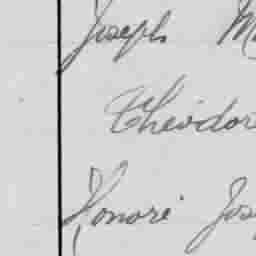 Joseph M
Théodor
Honoré Jos